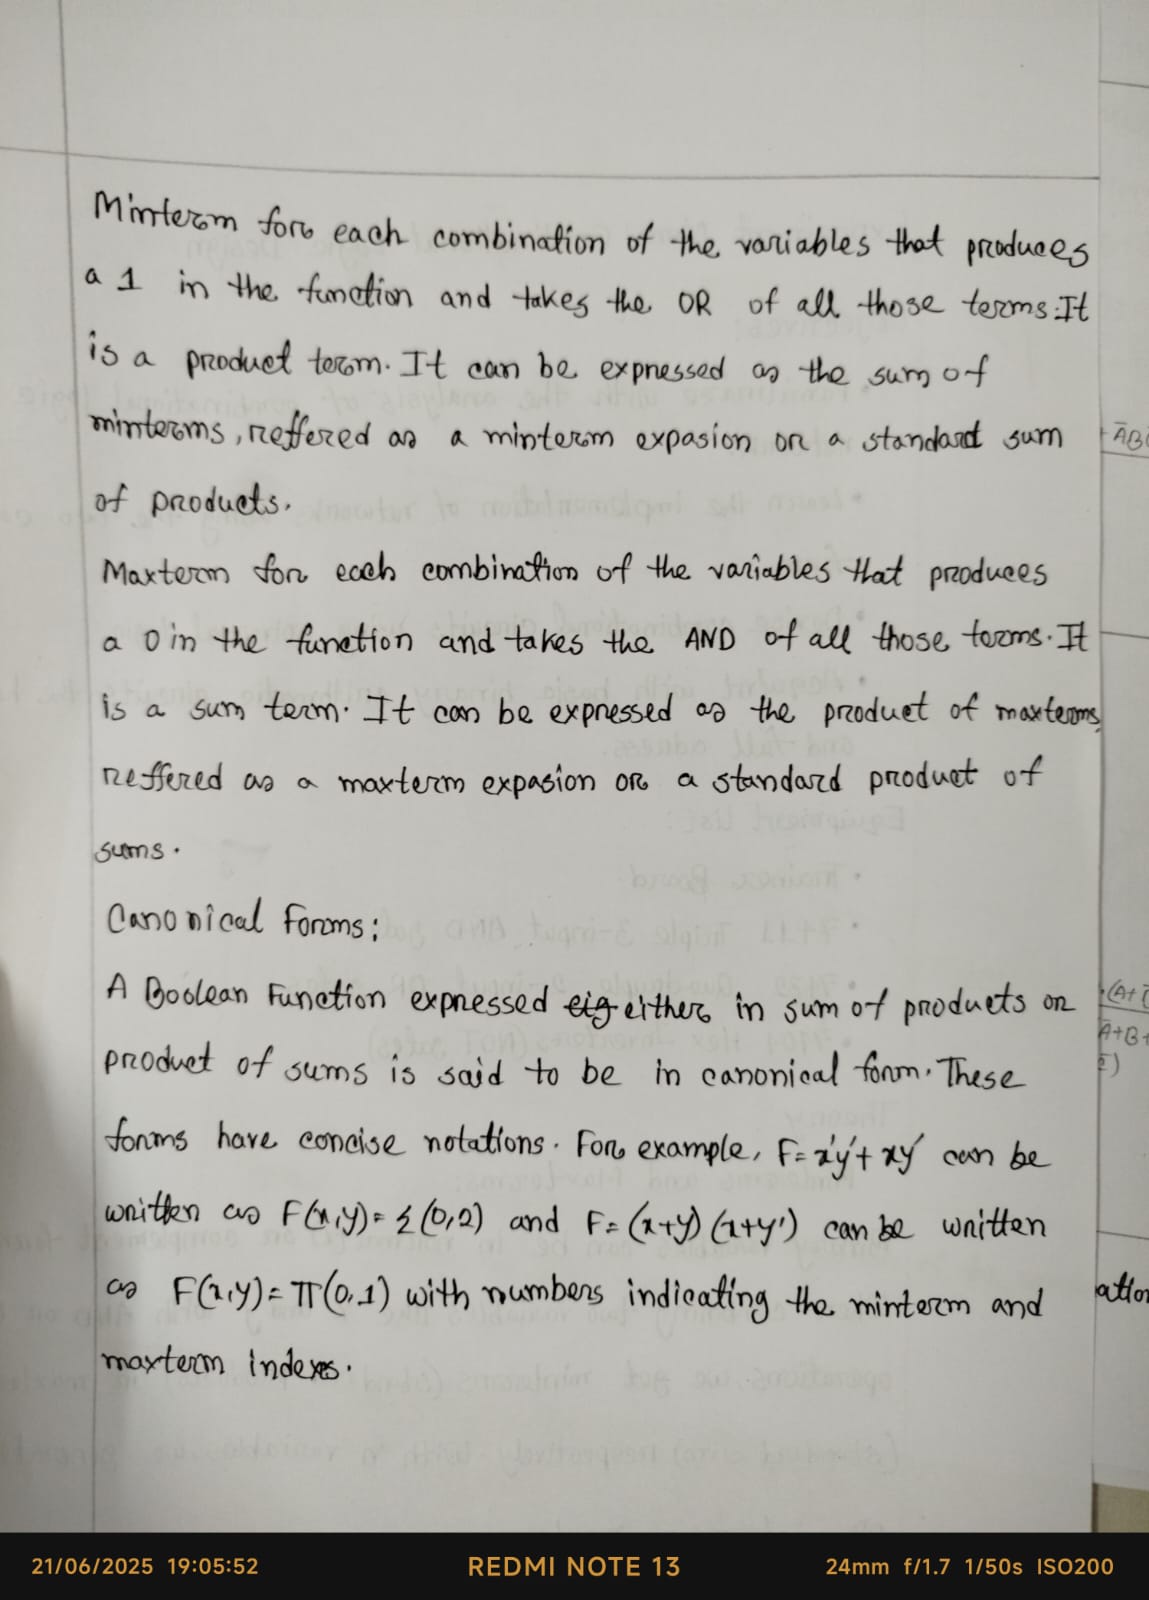 Minterm for each combination of the variables that produces
a 1 in the function and takes the OR of all those terms. It
is a product term. It can be expressed as the sum of
minterms, reffered as a minterm expasion or a standard sum
of products.
Maxterm for each combination of the variables that produces
a 0 in the function and takes the AND of all those terms. It
is a sum term. It can be expressed as the product of maxterms,
reffered as a maxterm expasion or a standard product of
sums.
Canonical Forms:
A Boolean Function expressed eig either in sum of products or
product of sums is said to be in canonical form. These
forms have concise notations. For example, F= x'y'+ xy' can be
written as F(x,y)= Σ(0,2) and F= (x+y) (x+y') can be written
as F(x,y)= π(0,1) with numbers indicating the minterm and
maxterm indexes.
21/06/2025 19:05:52 REDMI NOTE 13 24mm f/1.7 1/50s ISO200